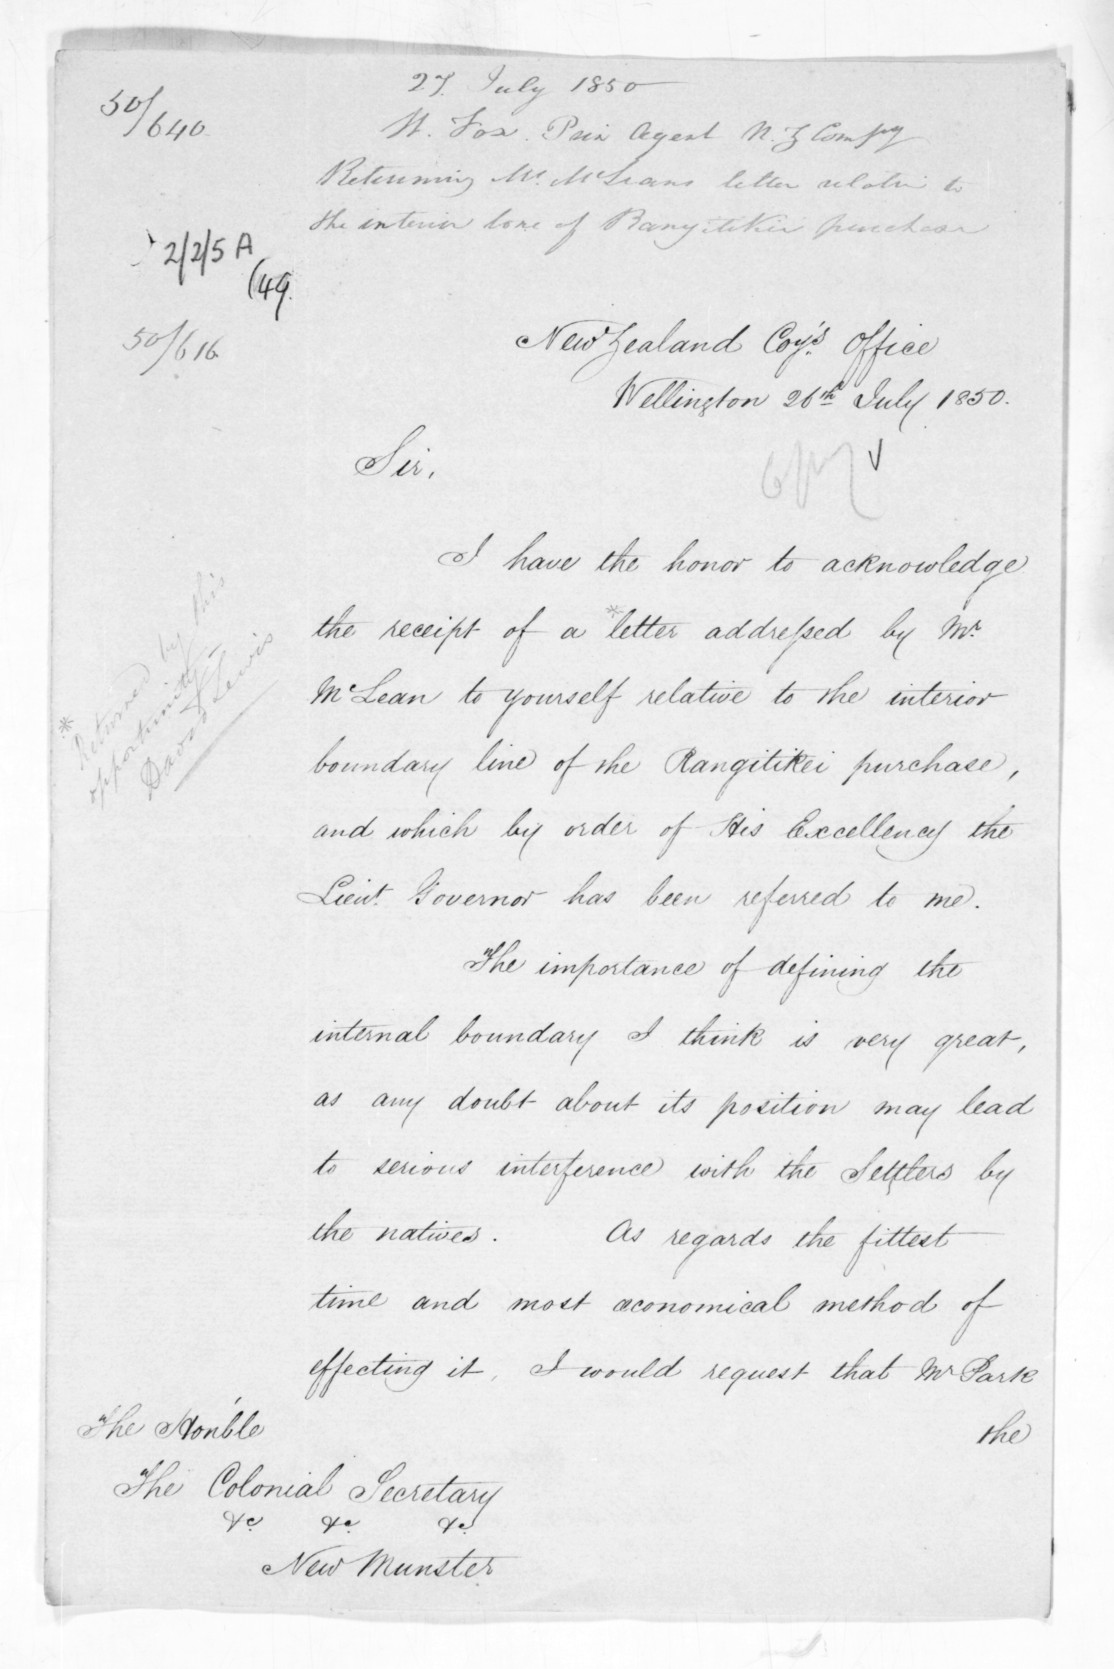 50/640
27. July 1850
W. Fox. Prin Agent N. Z Compy
Returning Mr. McLeans letter relative to
the interior line of Rangitikei purchase
2/2/5 A
(49.
50/616
New Zealand Coy's. Office
Wellington 26th July 1850.
Sir,
Copy
I have the honor to acknowledge
the receipt of a *letter addressed by Mr.
McLean to yourself relative to the interior
boundary line of the Rangitikei purchase,
and which by order of His Excellency the
Lieut. Governor has been referred to me.
* Returned by this
opportunity
David Lewis
The importance of defining the
internal boundary I think is very great,
as any doubt about its position may lead
to serious interference with the Settlers by
the natives. As regards the fittest
time and most œconomical method of
effecting it, I would request that Mr Park
the
The Hon'ble
The Colonial Secretary
&c. &c. &c.
New Munster